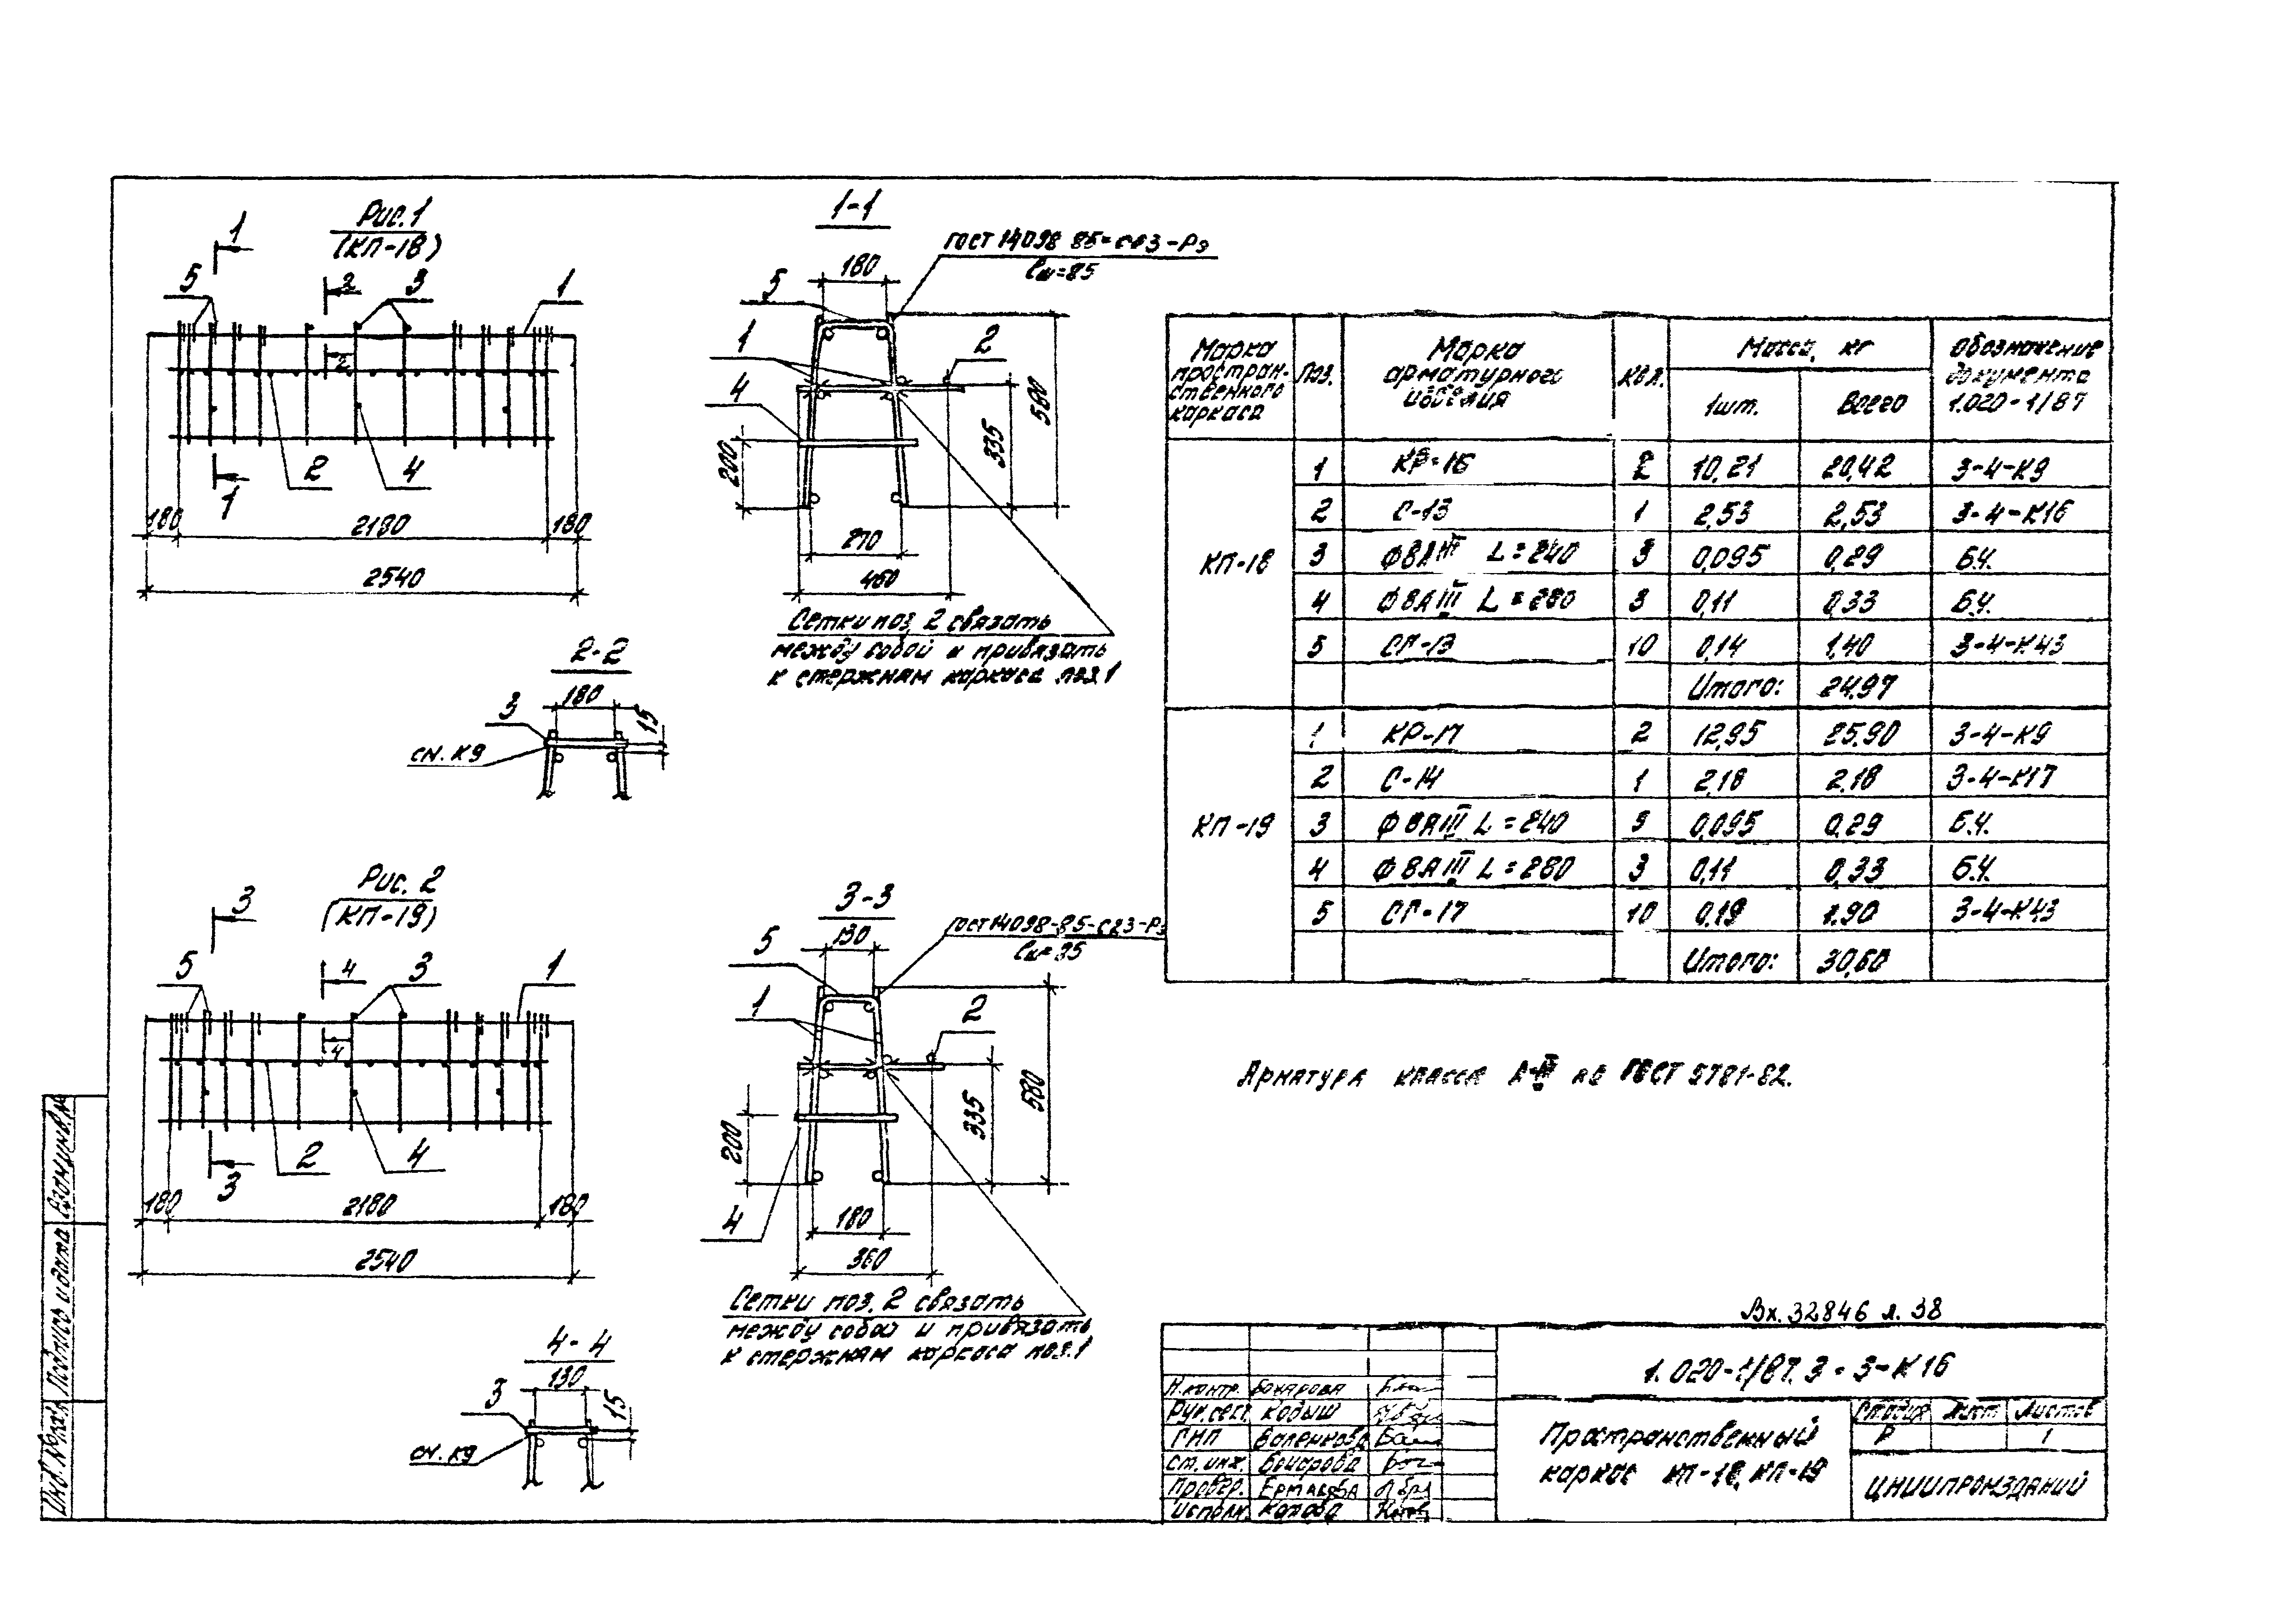 Рис. 1
(КП-18)
1
5
2
3
1
2
2
4
1
180
2180
180
2540
2-2
180
3
15
см. К9
1-1
ГОСТ 14098-85-С23-Рэ
ℓш=85
180
5
1
2
4
200
335
580
270
460
Сетки поз. 2 связать
между собой и привязать
к стержням каркаса поз.1
Рис. 2
(КП-19)
3
5
4
3
1
4
2
4
3
180
2180
180
2540
4-4
130
3
15
см. К9
3-3
ГОСТ 14098-85-С23-Рэ
130
5
1
2
200
335
580
4
180
360
Сетки поз. 2 связать
между собой и привязать
к стержням каркаса поз.1
Марка пространственного каркаса Поз. Марка арматурного изделия Кол. Масса, кг Обозначение документа 1.020-1/87
1шт. Всего
КП-18
1 КР-16 2 10,21 20,42 3-4-К9
2 С-13 1 2,53 2,53 3-4-К16
3 Ф8АIII L=240 3 0,095 0,29 Б.Ч.
4 Ф8АIII L=280 3 0,11 0,33 Б.Ч.
5 СГ-13 10 0,14 1,40 3-4-К43
Итого: 24,97
КП-19
1 КР-17 2 12,95 25,90 3-4-К9
2 С-14 1 2,18 2,18 3-4-К17
3 Ф8АIII L=240 3 0,095 0,29 Б.Ч.
4 Ф8АIII L=280 3 0,11 0,33 Б.Ч.
5 СГ-17 10 0,19 1,90 3-4-К43
Итого: 30,60
Арматура класса А-III по ГОСТ 5781-82.
Вх. 32846 л. 38
1.020-1/87. 3-3-К16
Н.контр. Бочарова
Рук.сект. Кодыш
ГИП
Ст. инж. Бочарова
Провер. Ермакова
Исполн. Котова
Пространственный
каркас КП-18, КП-19
Стадия Лист Листов
Р 1
ЦНИИПРОМЗДАНИЙ
Инв. № подл. Подпись и дата Взам.инв.№